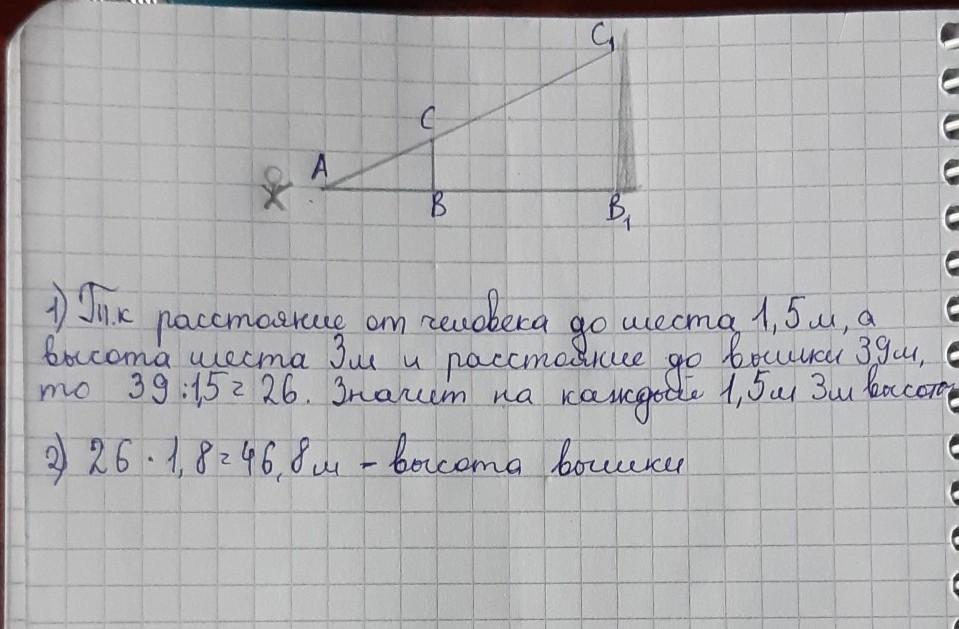 C₁
C
A
B
B₁
1) Т.к расстояние от человека до шеста 1,5м, а
высота шеста 3м и расстояние до вышки 39м,
то 39:1,5=26. Значит на каждые 1,5м 3м высоты
2) 26 · 1,8=46,8м - высота вышки